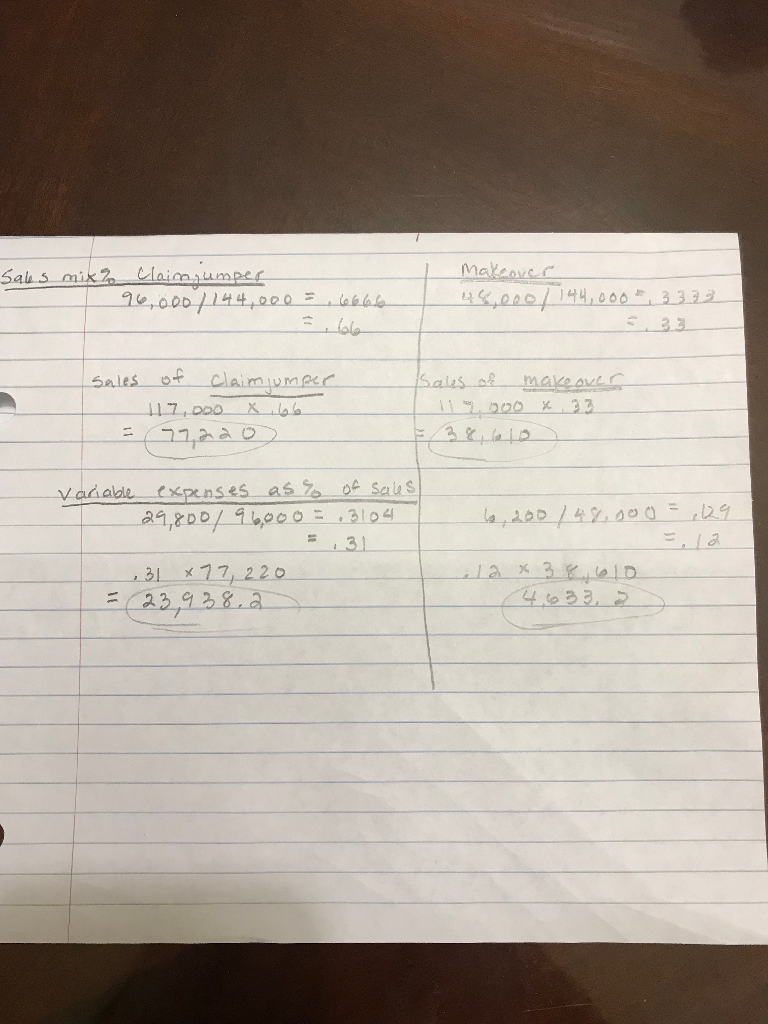 Sales mix% Claimjumper
96,000/144,000 = .6666
= .66
Sales of Claimjumper
117,000 x .66
= 77,220
Variable expenses as % of sales
29,800/96,000 = .3104
= .31
.31 x 77,220
= 23,938.2
Makeover
48,000/144,000 = .3333
= .33
Sales of makeover
117,000 x .33
= 38,610
6,200/48,000 = .129
= .12
.12 x 38,610
4,633.2